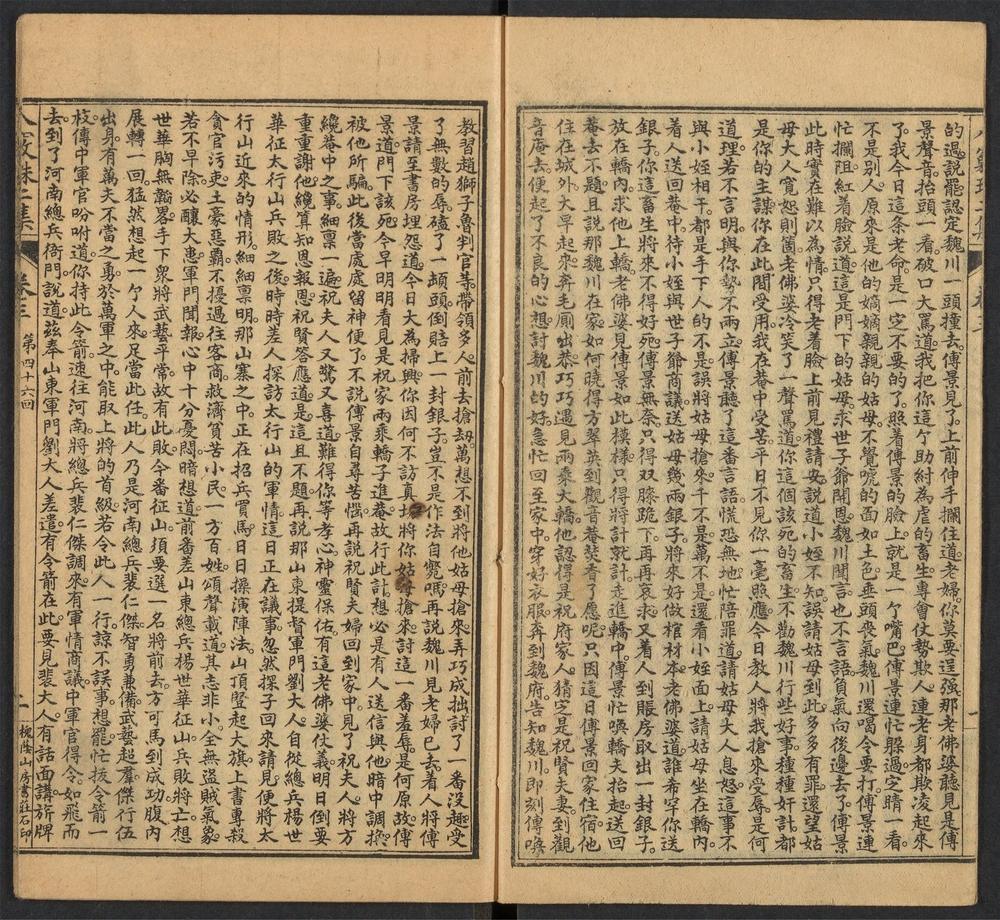 的過說罷認定魏川一頭撞去傅景見了上前伸手攔住道老婦你莫要逞强那老佛婆聽見是傅
景聲音抬頭一看破口大罵道我把你這个助紂為虐的畜生專會仗勢欺人連老身都欺凌起來
了我今日這條老命是一定不要的了照着傅景的臉上就是一个嘴巴傅景連忙躲過定睛一看
不是别人原來是他的嫡嫡親親的姑母不覺唬的面如土色垂頭喪氣魏川還喝令要打傅景連
忙攔阻紅着臉說道這是門下的姑母求世子爺開恩魏川聞言也不言語負氣向後邊去了傅景
此時實在難以為情只得老着臉上前見禮請安說道小姪不知誤請姑母到此多多有罪還望姑
母大人寬恕則箇老佛婆冷笑了一聲罵道你這個該死的畜生不勸魏川行些好事種種奸計都
是你的主謀你在此間受用我在菴中受苦平日不見你一毫照應今日教人將我搶來受辱是何
道理若不言明與你勢不兩立傅景聽了這番言語慌恐無地忙陪罪道請姑母大人息怒這事不
與小姪相干都是手下人的不是誤將姑母搶來千不是萬不是還看小姪面上請姑母坐在轎內
着人送回菴中待小姪與世子爺商議送姑母幾兩銀子將來好做棺材本老佛婆道誰希罕你送
銀子你這畜生將來不得好死傅景無奈只得双膝跪下再再哀求又着人到賬房取出一封銀子
放在轎內求他上轎老佛婆見傅景如此模樣只得將計就計走進轎中傅景忙喚轎夫抬起送回
菴去不題且說那魏川在家如何曉得方翠英到觀音菴焚香了愿呢只因這日傅景回家住宿他
住在城外大早起來奔毛厠出恭巧巧遇見兩乘大轎他認得是祝府家人猜定是祝賢夫妻到觀
音庵去便起了不良的心想討魏川的好急忙回至家中穿好衣服奔到魏府告知魏川即刻傳喚
教習趙獅子魯判官等帶領多人前去搶刼萬想不到將他姑母搶來弄巧成拙討了一番沒趣受
了無數的辱磕了一頓頭倒賠上一封銀子豈不是作法自斃嗎再說魏川見老婦已去着人將傅
景請至書房埋怨道今日大為掃興你因何不訪真切將你姑母搶來討這一番羞辱是何原故傅
景道門下該死今早明明看見是祝家兩乘轎子進菴故行此計想必是有人送信與他暗中調換
被他所騙此後當處處留神便了不說傅景自尋苦惱再說祝賢夫婦回到家中見了祝夫人將方
纔菴中之事細稟一遍祝夫人又驚又喜道難得你等孝心神靈保佑有這老佛婆仗義明日倒要
重重謝他纔算知恩報恩祝賢答應道是這且不題再說那山東提督軍門劉大人自從總兵楊世
華征太行山兵敗之後時時差人探訪太行山的軍情這日正在議事忽然探子回來請見便將太
行山近來的情形細細稟明那山寨之中正在招兵買馬日日操演陣法山頂登起大旗上書專殺
貪官污吏土豪惡霸不擾過往客商救濟貧苦小民一方百姓頌聲載道其志非小全無盜賊氣象
若不早除必釀大患軍門聞報心中十分憂悶暗想道前番差山東總兵楊世華征山兵敗將亡想
世華胸無韜畧手下衆將武藝平常故有此敗今番征山須要選一名將前去方可馬到成功腹內
展轉一回猛然想起一个人來足當此任此人乃是河南總兵裴仁傑智勇兼備武藝超羣傑行伍
出身有萬夫不當之勇於萬軍之中能取上將的首級若令此人一行諒不誤事想罷忙拔令箭一
枝傳中軍官吩咐道你持此令箭速往河南將總兵裴仁傑調來有軍情商議中軍官得令如飛而
去到了河南總兵衙門說道茲奉山東軍門劉大人差遣有令箭在此要見裴大人有話面講旂牌
卷三
第四十六回
一
槐蔭山房書莊石印